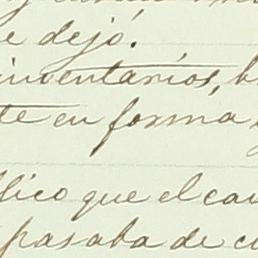 e dejó.
inventarios, b
te en forma
lico que el cau
pasaba de c